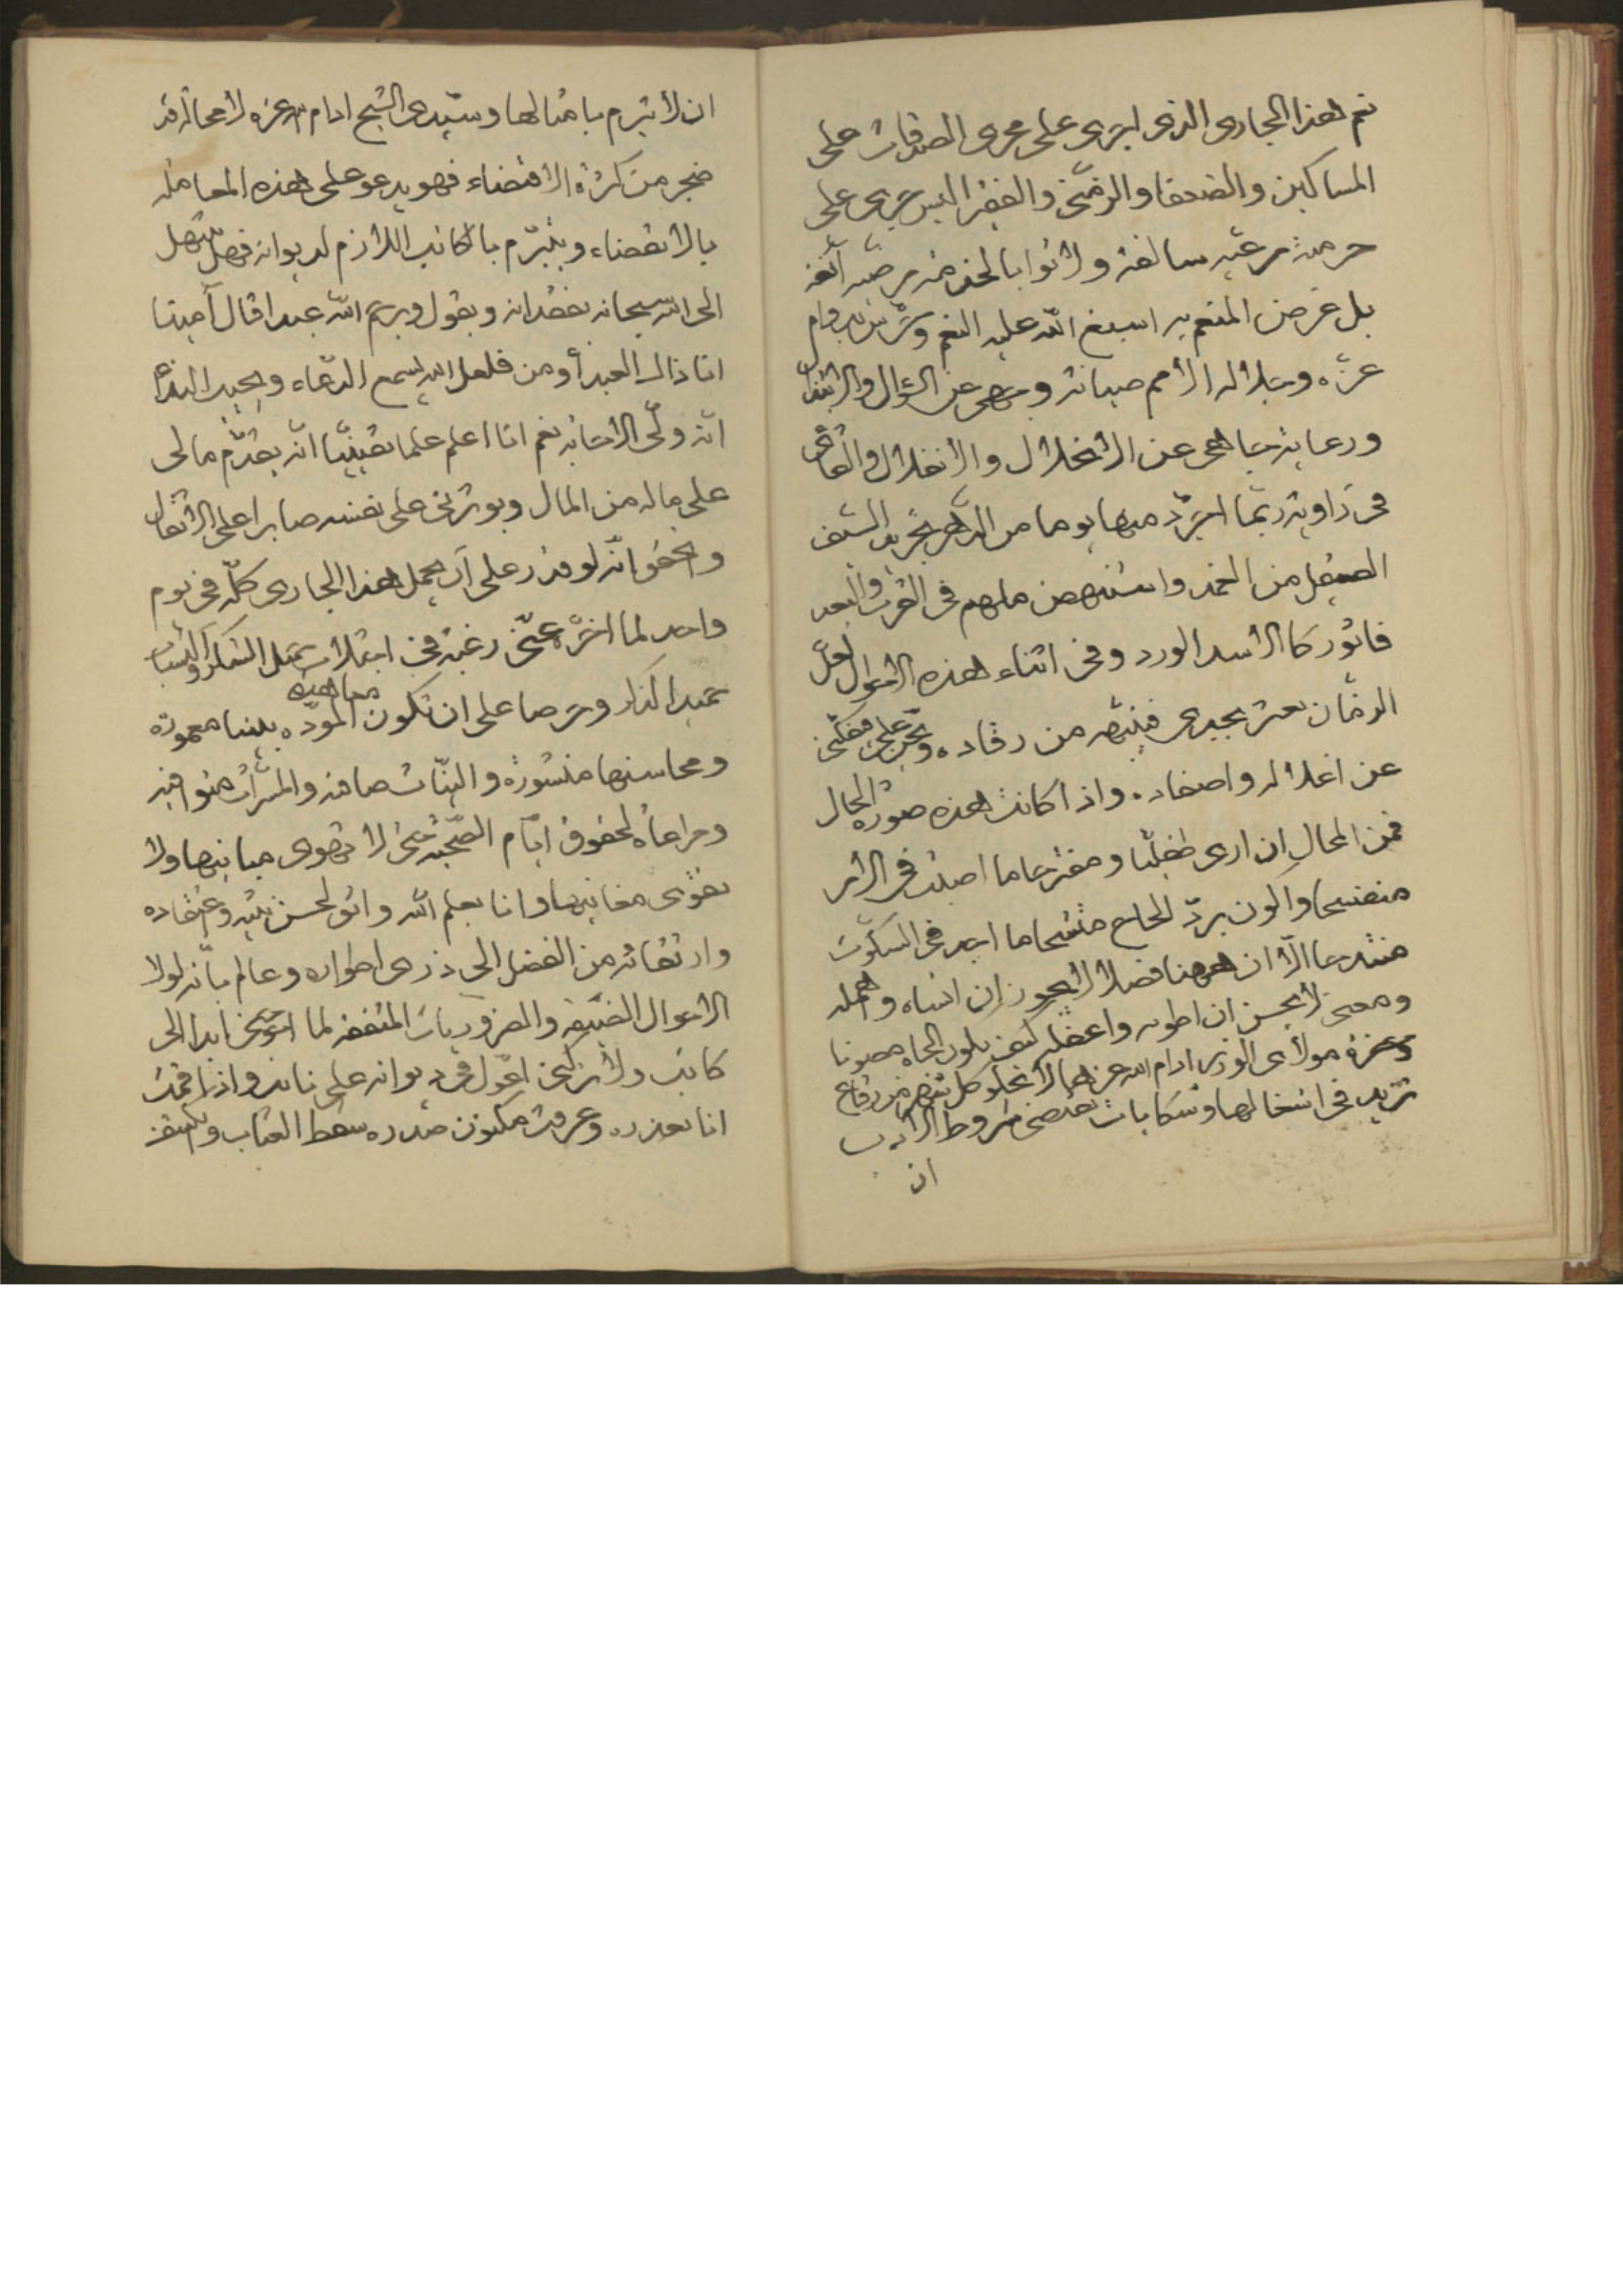 ثم هذا الجاري الذي اجري على مجرى الصدقات على
المساكين والضعفا والزمنى والفقرا ليس يجري على
حرمة مرعية سالفة ولا ثوابا لخدمة مرضية آنفة
بل غرض المنعم به اسبغ الله عليه النعم وشرف بدوام
عزه وجلاله الأمم صيانة وجهي عن السؤال والابتذال
ورعاية جاهي عن الاختلال والانفلال والقائي
في زاوية ربما اجرد منها يوما من الدهر تجريد السيف
الصقيل من الغمد واستنهض ملهم في القرب والبعد
فاثور كالاسد الورد وفي اثناء هذه الاحوال لعل
الزمان يعثر بجدي فينتبه من رقاده ويحن علي فيفكني
عن اغلاله واصفاده واذا كانت هذه صورة الحال
فمن المحال ان ارى طفيليا ومقترحا ما اصبت في الامر
منفسحا واكون برد الحاح متشحا ما اجد في السكوت
منتدحا الا ان ههنا فصلا لا يجوز ان انساه واهمله
ومعنى لا يحسن ان اطويه واغفله كيف يكون الجاه مصونا
وحضرة مولاي الوزير ادام الله عزها لا تخلو كل شهر من رقاع
تزيد في اشغالها وشكايات تقتضي شروط الادب
ان
ان لا تبرم بامثالها وسيدي الشيخ ادام الله عزه لا محالة قد
ضجر من كثرة الاقتضاء فهو يدعو على هذه المعاملة
بالانقضاء ويتبرم بالكاتب اللازم لديوانه فهل يبتهل
الى الله سبحانه بفقدانه ويقول ويرحم الله عبدا قال آمينا
انا ذاك العبد أومن فلعل الله يسمع الدعاء ويجيب النداء
انه ولي الاجابة نعم انا اعلم علما يقينيا انه يقدم مالي
على ماله من المال ويوثرني على نفسه صابرا على الاثقال
واتحقق انه لو قدر على ان يحمل هذا الجاري كله في يوم
واحد لما اخره عني رغبة في اجتلاب جميل الشكر واكتساب
حميد الذكر وحرصا على ان تكون معاهد المودة بيننا معمورة
ومحاسنها منشورة والنيات صافية والمسرات متوافية
ومراعاة لحقوق ايام الصحبة حتى لا تهوى مبانيها ولا
تقوى مغانيها وانا يعلم الله واثق لحسن نيته وعقاده
وارتقائه من الفضل الى ذرى اطواده وعالم بانه لولا
الاحوال الضيقة والضروريات المتفقة لما احوجني ابدا الى
كاتب ولا تركني اعول في ديوانه على نائب واذا قمت
انا بعذره وعرفت مكنون صدره سقط العتاب وانكشف